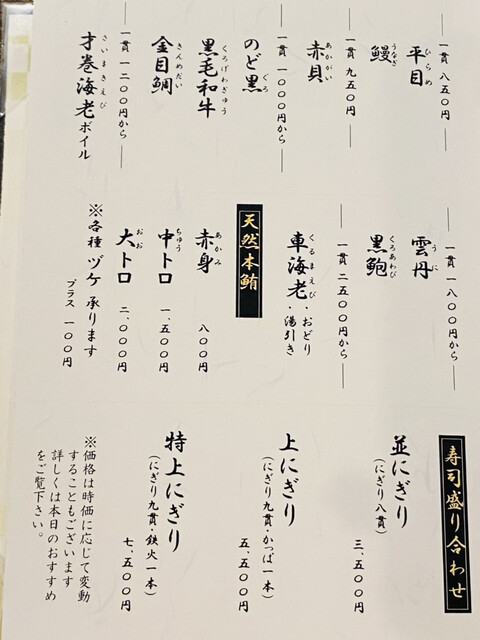 一貫 八五〇円
ひらめ
平目
うなぎ
鰻
一貫 九五〇円
あかがい
赤貝
ぐろ
のど黒
一貫 一〇〇〇円から
くろげわぎゅう
黒毛和牛
きんめだい
金目鯛
一貫 一二〇〇円から
さいまきえび
才巻海老ボイル
一貫 一八〇〇円から
うに
雲丹
くろあわび
黒鮑
一貫 二五〇〇円から
くるまえび
車海老・おどり
・湯引き
天然本鮪
あかみ
赤身 八〇〇円
ちゅう
中トロ 一、五〇〇円
おお
大トロ 二、〇〇〇円
※各種 ヅケ 承ります
プラス 一〇〇円
寿司盛り合わせ
並にぎり
(にぎり八貫)
三、五〇〇円
上にぎり
(にぎり九貫・かっぱ一本)
五、五〇〇円
特上にぎり
(にぎり九貫・鉄火一本)
七、五〇〇円
※価格は時価に応じて変動
することもございます
詳しくは本日のおすすめ
をご覧下さい。